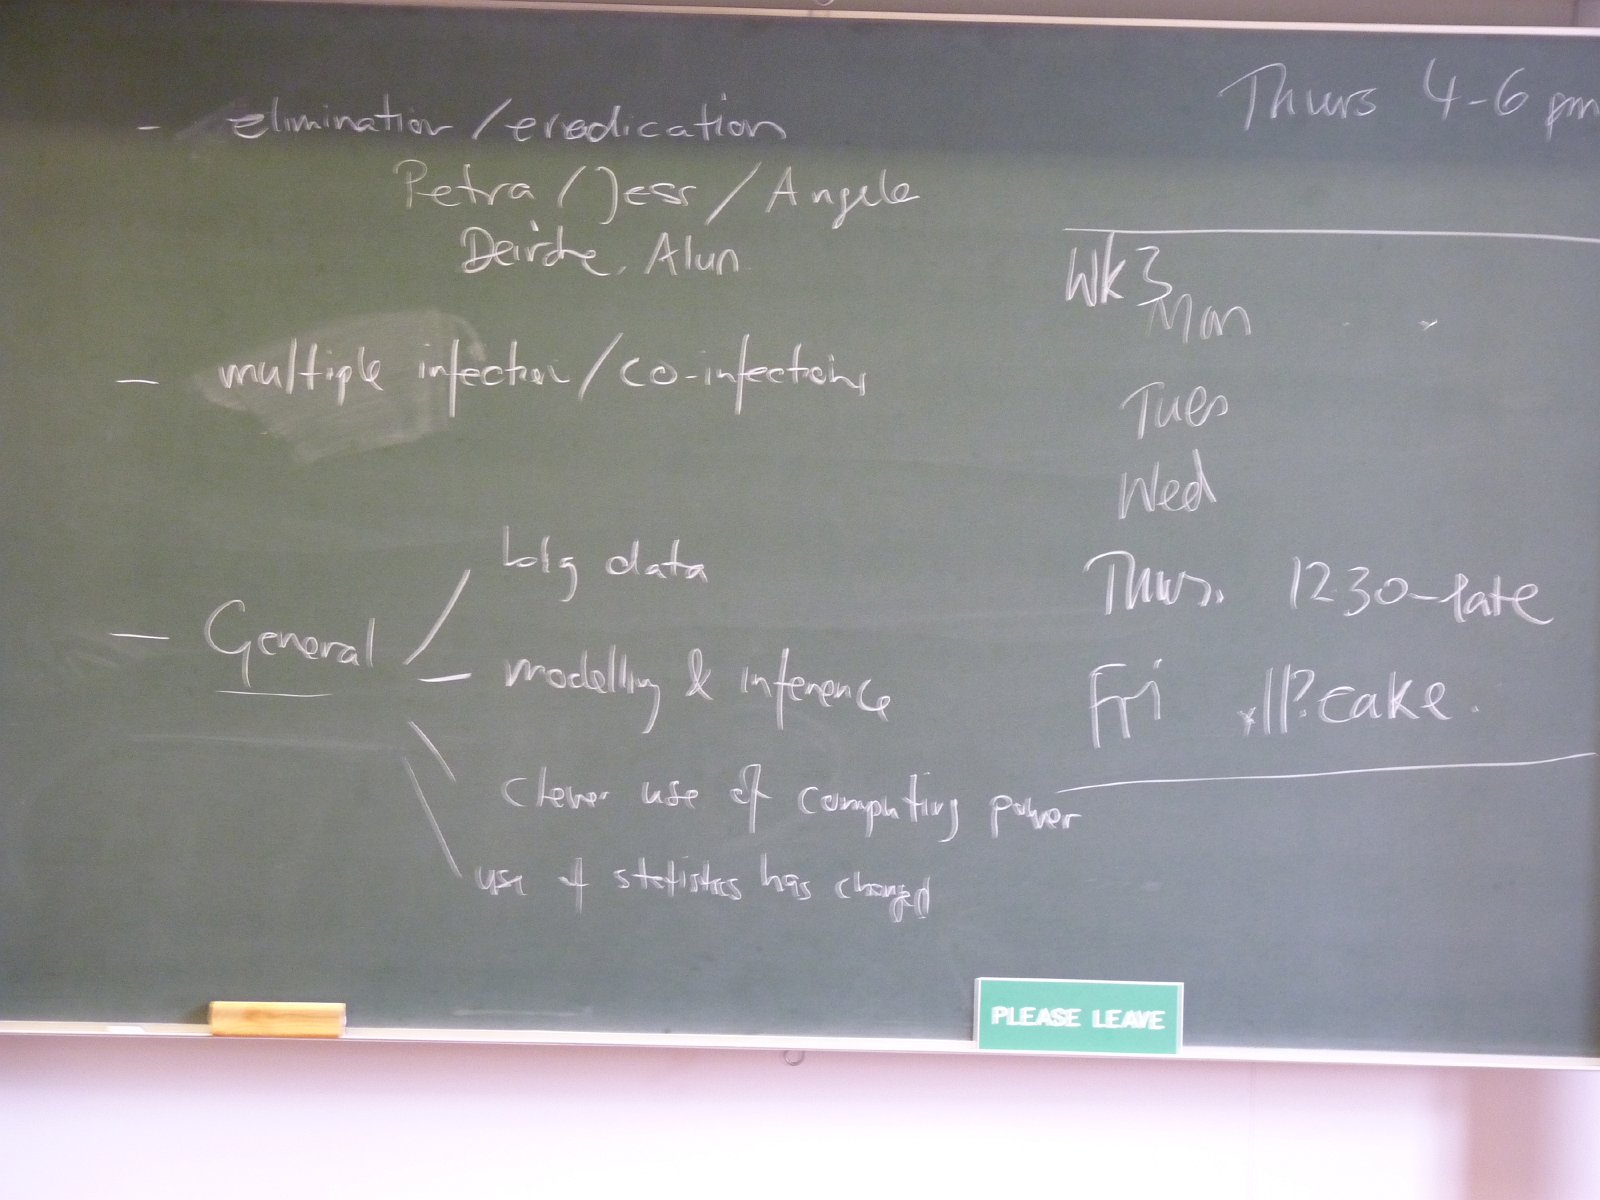 - elimination / eradication
Petra / Jess / Angela
Deirdre, Alun
- multiple infection / co-infections
- General
big data
- modelling & inference
clever use of computing power
use of statistics has changed
Thurs 4-6 pm
Wk 3
Mon
Tues
Wed
Thurs. 1230-late
Fri 11? cake.
PLEASE LEAVE